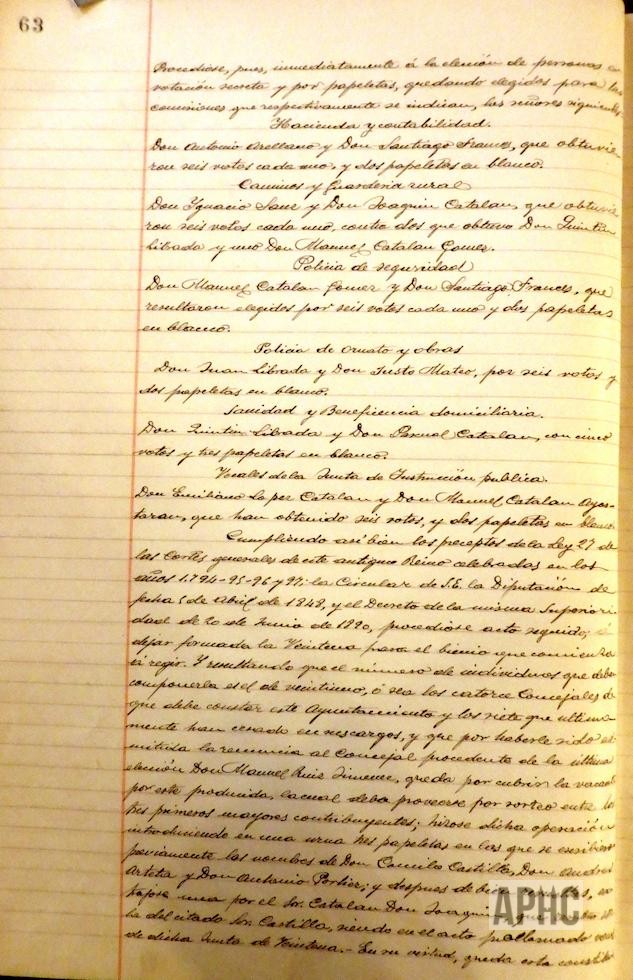 63
Procedióse, pues, inmediatamente á la elección de personas en
votación secreta y por papeletas, quedando elegidos para las
comisiones que respectivamente se indican, los señores siguientes
Hacienda y contabilidad.
Don Antonio Arellano y Don Santiago Frances, que obtuvie-
ron seis votos cada uno, y dos papeletas en blanco.
Caminos y Guarderia rural
Don Ygnacio Sanz y Don Joaquin Catalan, que obtuvie
ron seis votos cada uno, contra dos que obtuvo Don Quintin
Librada y uno Don Manuel Catalan Gomez.
Policia de seguridad
Don Manuel Catalan Gomez y Don Santiago Frances, que
resultaron elegidos por seis votos cada uno y dos papeletas
en blanco.
Policia de ornato y obras
Don Juan Librada y Don Justo Mateo, por seis votos y
dos papeletas en blanco.
Sanidad y Beneficencia domiciliaria.
Don Quintin Librada y Don Pascual Catalan, con cinco
votos y tres papeletas en blanco.
Vocales de la Junta de Instrucción publica.
Don Emiliano Lopez Catalan y Don Manuel Catalan Ayos-
taran, que han obtenido seis votos, y dos papeletas en blanco
Cumpliendo asi bien los preceptos de la Ley 27 de
las Cortes generales de este antiguo Reino celebradas en los
años 1.794-95-96 y 97; la Circular de S.E. la Diputación de
fecha 5 de Abril de 1848, y el Decreto de la misma Superiori-
dad de 20 de Junio de 1890, procedióse acto seguido, á
dejar formada la Veintena para el bienio que comienza
á regir. Y resultando que el número de individuos que deben
componerla es el de veintiuno, ó sea los catorce Concejales de
que debe constar este Ayuntamiento y los siete que ultima-
mente han cesado en sus cargos, y que por haberle sido ad-
mitida la renuncia al Concejal procedente de la última
elección Don Manuel Ruiz Jimenez, queda por cubrir la vacante
por este producida, la cual debe proveerse por sorteo entre los
tres primeros mayores contribuyentes; hizose dicha operación
introduciendo en una urna tres papeletas en las que se escribieron
previamente los nombres de Don Camilo Castilla, Don Andres
Arteta y Don Antonio Portier; y despues de bien
una por el Sr. Catalan Don Joaquin, que
la del citado Sr. Castilla, siendo en el acto proclamado vocal
de dicha Junta de Veintena.- En su virtud, queda esta constitui
APHC